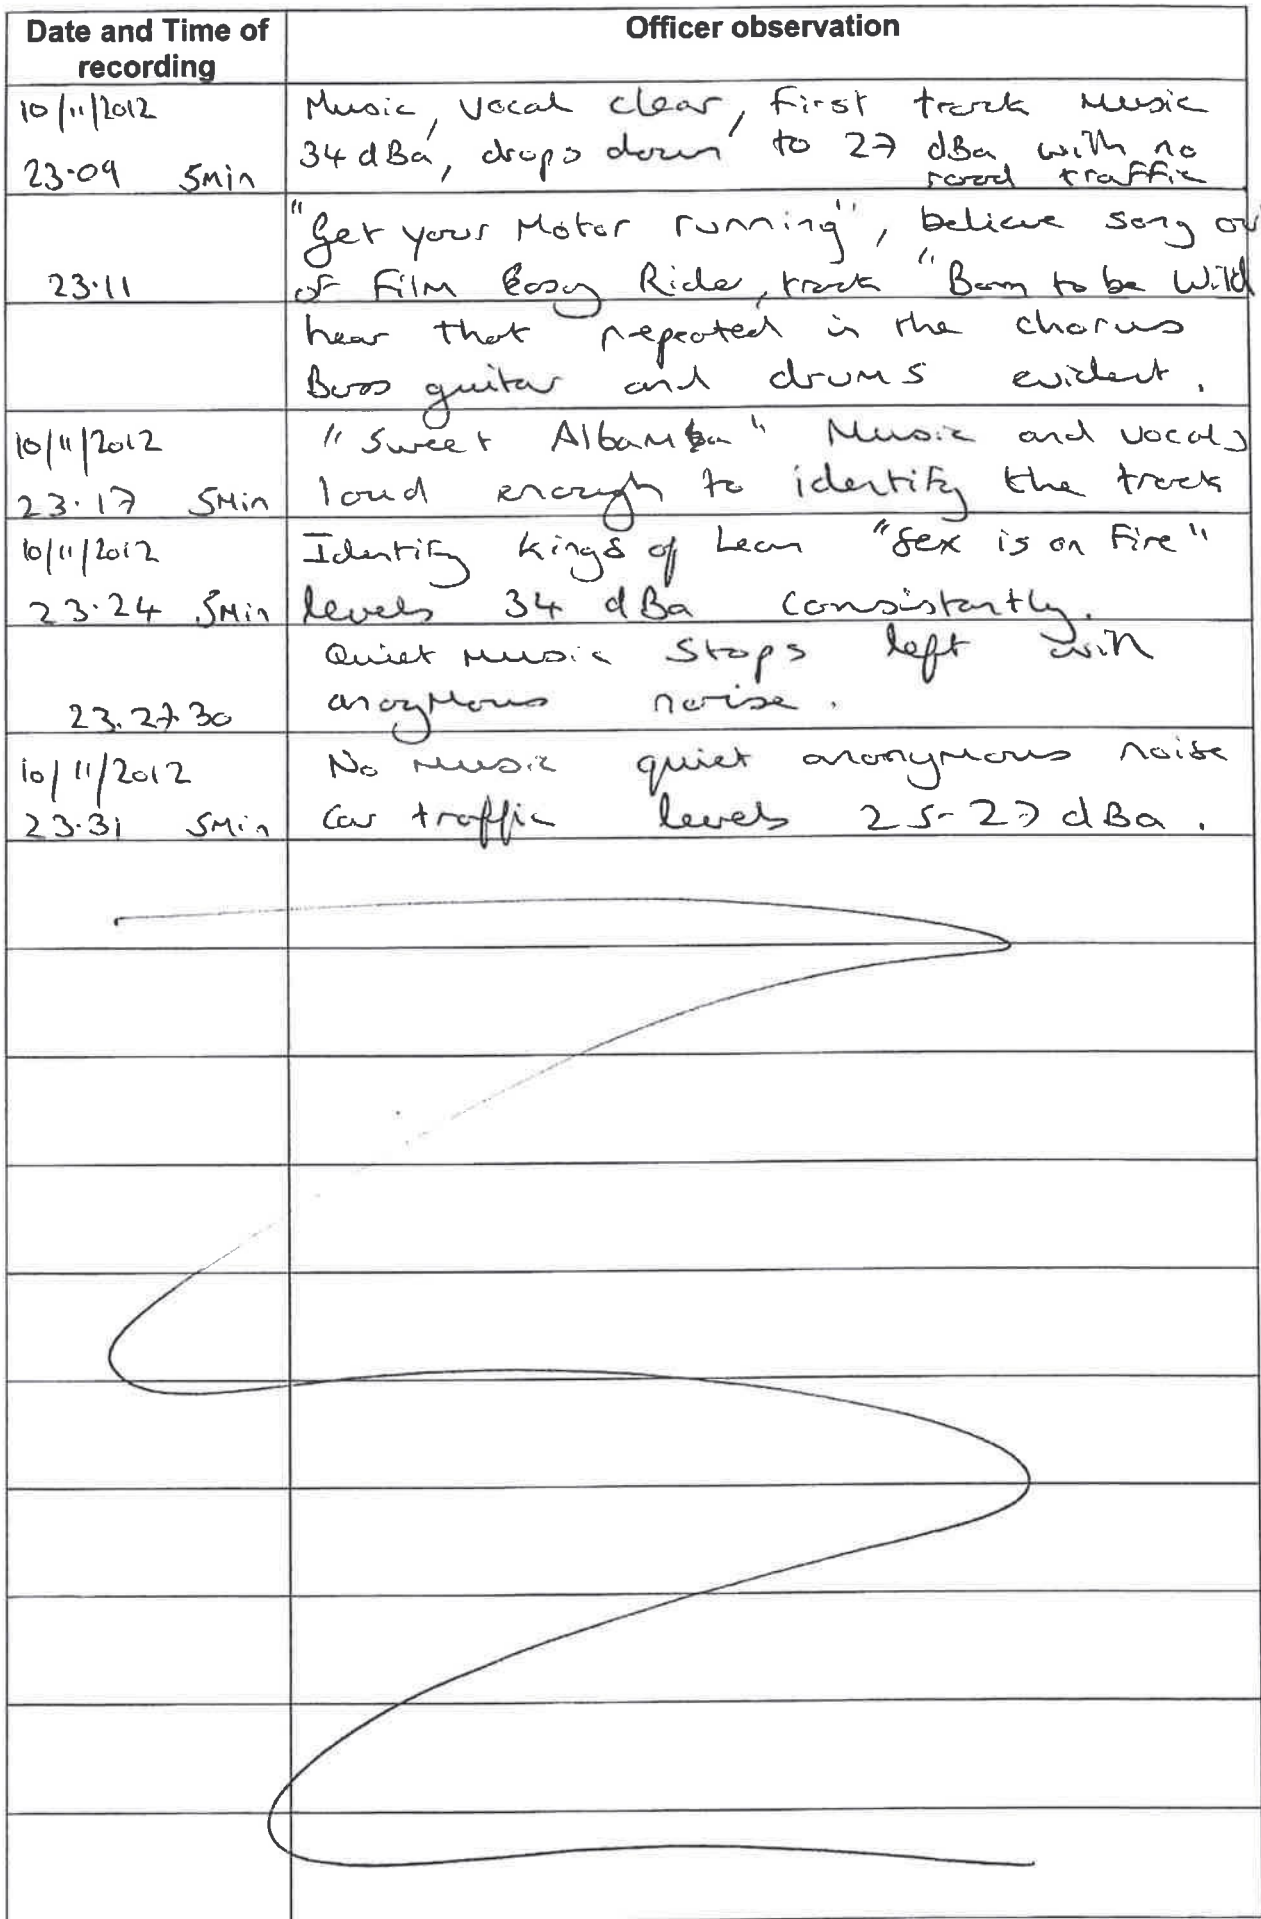 Date and Time of recording
Officer observation
10/11/2012
Music, vocal clear, first track Music
23.09 5min
34 dBa, drops down to 27 dBa with no
road traffic
"Get your Motor running", believe song
23.11
of Film Easy Rider, track "Born to be Wild
hear that repeated in the chorus
Bass guitar and drums evident.
10/11/2012
"Sweet Albamba" Music and vocals
23.17 5Min
loud enough to identify the track
10/11/2012
Identify Kings of Leon "Sex is on Fire"
23.24 5Min
levels 34 dBa consistantly.
Quiet music stops left with
23.27.30
anoymous noise.
10/11/2012
No music quiet anonymous noise
23.31 5Min
Car traffic levels 25-27 dBa.